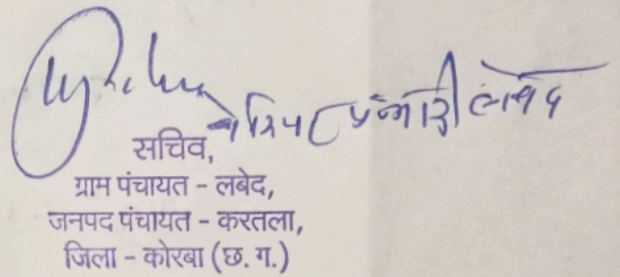 प्रभारी लबेद
सचिव,
ग्राम पंचायत - लबेद,
जनपद पंचायत - करतला,
जिला - कोरबा (छ. ग.)